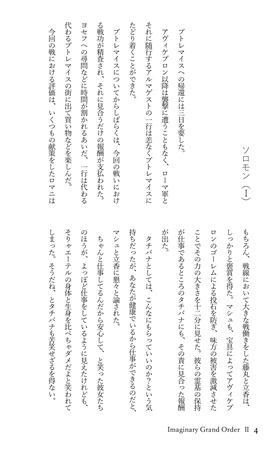 ソロモン（Ⅰ）
プトレマイスへの帰還には三日を要した。
アヴィケブロン以降は襲撃に遭うこともなく、ローマ軍と
それに随行するアルマゲストの一行は恙なくプトレマイスに
たどり着くことができた。
プトレマイスについてからしばらくは、今回の戦いにおけ
る戦功が精査され、それに見合うだけの報酬が支払われた。
ヨセフへの尋問などに時間が割かれるあいだ、一行は代わる
代わるプトレマイスの街に出て買い物などを楽しんだ。
今回の戦における評価は、いくつもの献策をしたロマニは
もちろん、戦線において大きな戦働きをした藤丸と立香は、
しっかりと褒賞を得た。マシュも、宝具によってアヴィケブ
ロンのゴーレムによる投石を防ぎ、味方の被害を激減させた
ことでその力の大きさを十二分に見せた。彼らの霊基の保持
が仕事であるところのタチバナにも、その度に見合った報酬
が出た。
タチバナとしては、こんなにもらっていいのか？という気
持ちだったが、あなたが健康でいるから仕事ができるのだと、
マシュと立香に懇々と諭された。
ちゃんと仕事してるんだから安心して、と笑った彼女たち
のほうが、よっぽど仕事をしているように見えたけれども、
そりゃエーテルの身体と生身を比べちゃダメだよと笑われて
しまった。そうだね、とタチバナも苦笑せざるを得ない。
Imaginary Grand Order Ⅱ 4